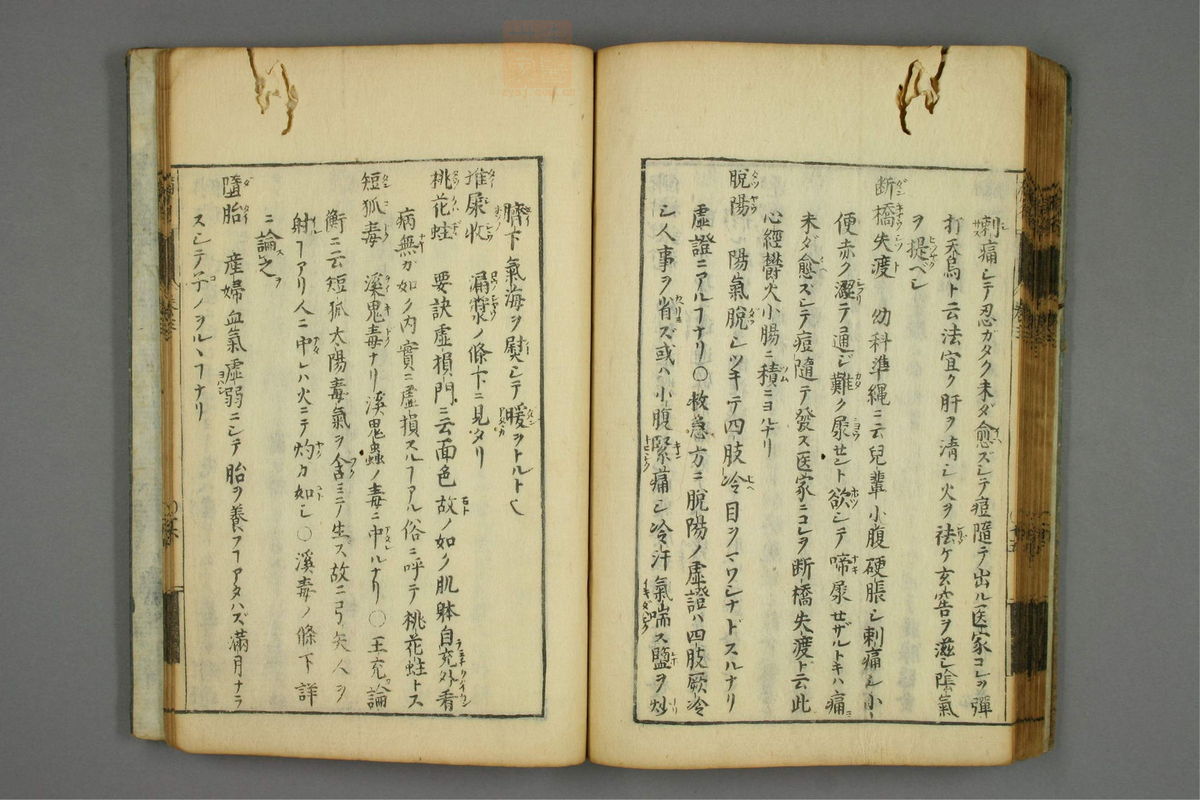 刺痛シテ忍ガタク未ダ愈ズシテ痘隨テ出ル医家コレヲ彈
打天鳥ト云法宜ク肝ヲ清シ火ヲ祛ケ玄窖ヲ滋シ陰氣
ヲ提ベシ
断橋失渡 幼科準縄ニ云兒輩小腹硬脹シ刺痛シ小
便赤ク澀テ通ジ難ク尿セント欲シテ啼尿セザルトキハ痛
未ダ愈ズシテ痘隨テ發ス医家ニコレヲ断橋失渡ト云此
心經欝火小腸ニ積ニヨルナリ
脱陽 陽氣脱シツキテ四肢冷目ヲマワシナドスルナリ
虚證ニアルヿナリ〇救急方ニ脱陽ノ虚證ハ四肢厥冷
シ人事ヲ省ズ或ハ小腹緊痛シ冷汗氣喘ス鹽ヲ炒
臍下氣海ヲ熨シテ暖ヲトルト
堆尿收 漏ノ條下ニ見タリ
桃花蛀 要訣虚損門ニ云面色故ノ如ク肌躰自充外看
病無ガ如ク内實ニ虚損スルヿアル俗ニ呼テ桃花蛀トス
短狐毒 溪鬼毒ナリ溪鬼蟲ノ毒ニ中ルナリ〇王充論
衡ニ云短狐太陽毒氣ヲ含ミテ生ス故ニ弓矢人ヲ
射ヿアリ人ニ中レハ火ニテ灼カ如シ〇溪毒ノ條下詳
ニ論之
墮胎 産婦血氣虚弱ニシテ胎ヲ養フヿアタハズ滿月ナラ
ズシテ子ノヲルヽヿナリ